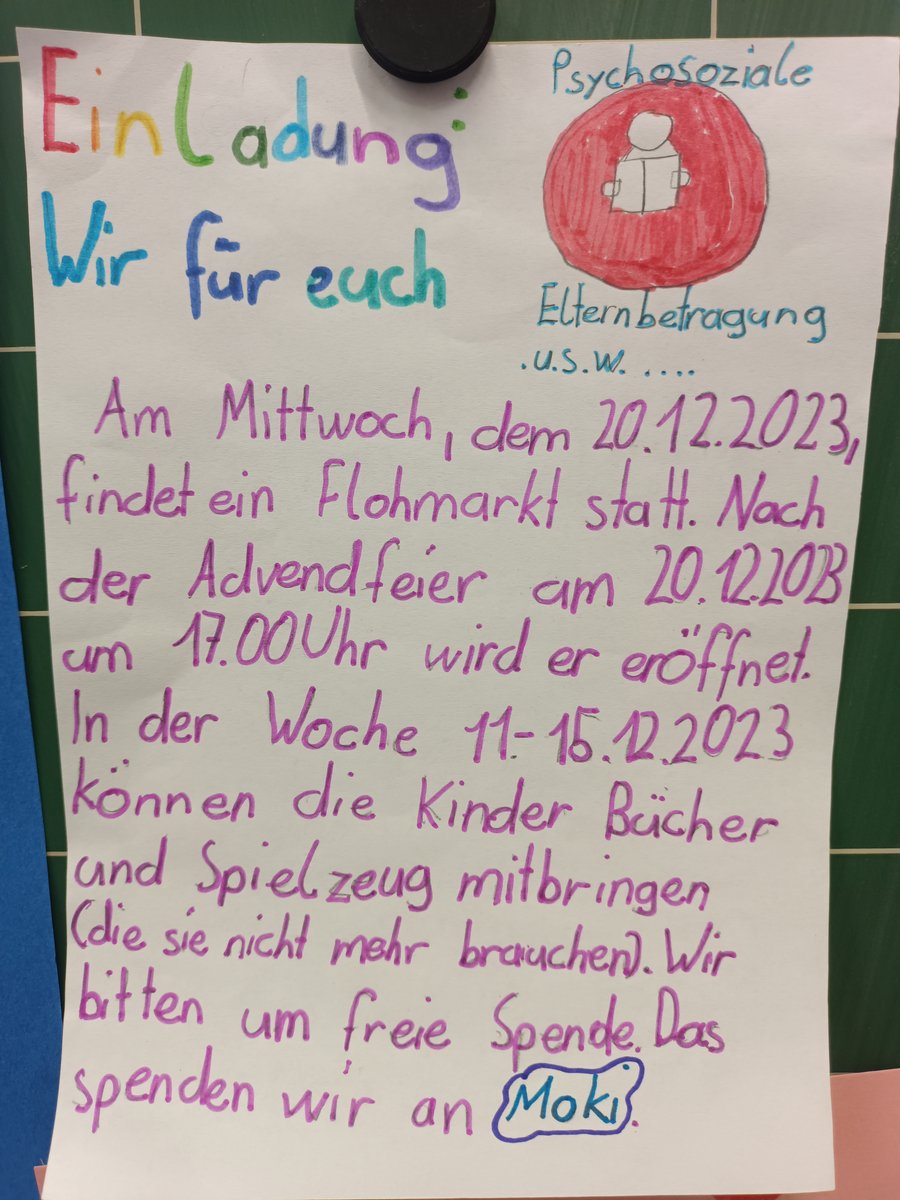 Einladung:
Wir für euch
Psychosoziale
Elternbetragung
.u.s.w. ....
Am Mittwoch, dem 20.12.2023,
findet ein Flohmarkt statt. Nach
der Advendfeier am 20.12.2023
um 17.00 Uhr wird er eröffnet.
In der Woche 11.-15.12.2023
können die Kinder Bücher
und Spielzeug mitbringen
(die sie nicht mehr brauchen). Wir
bitten um freie Spende. Das
spenden wir an Moki.